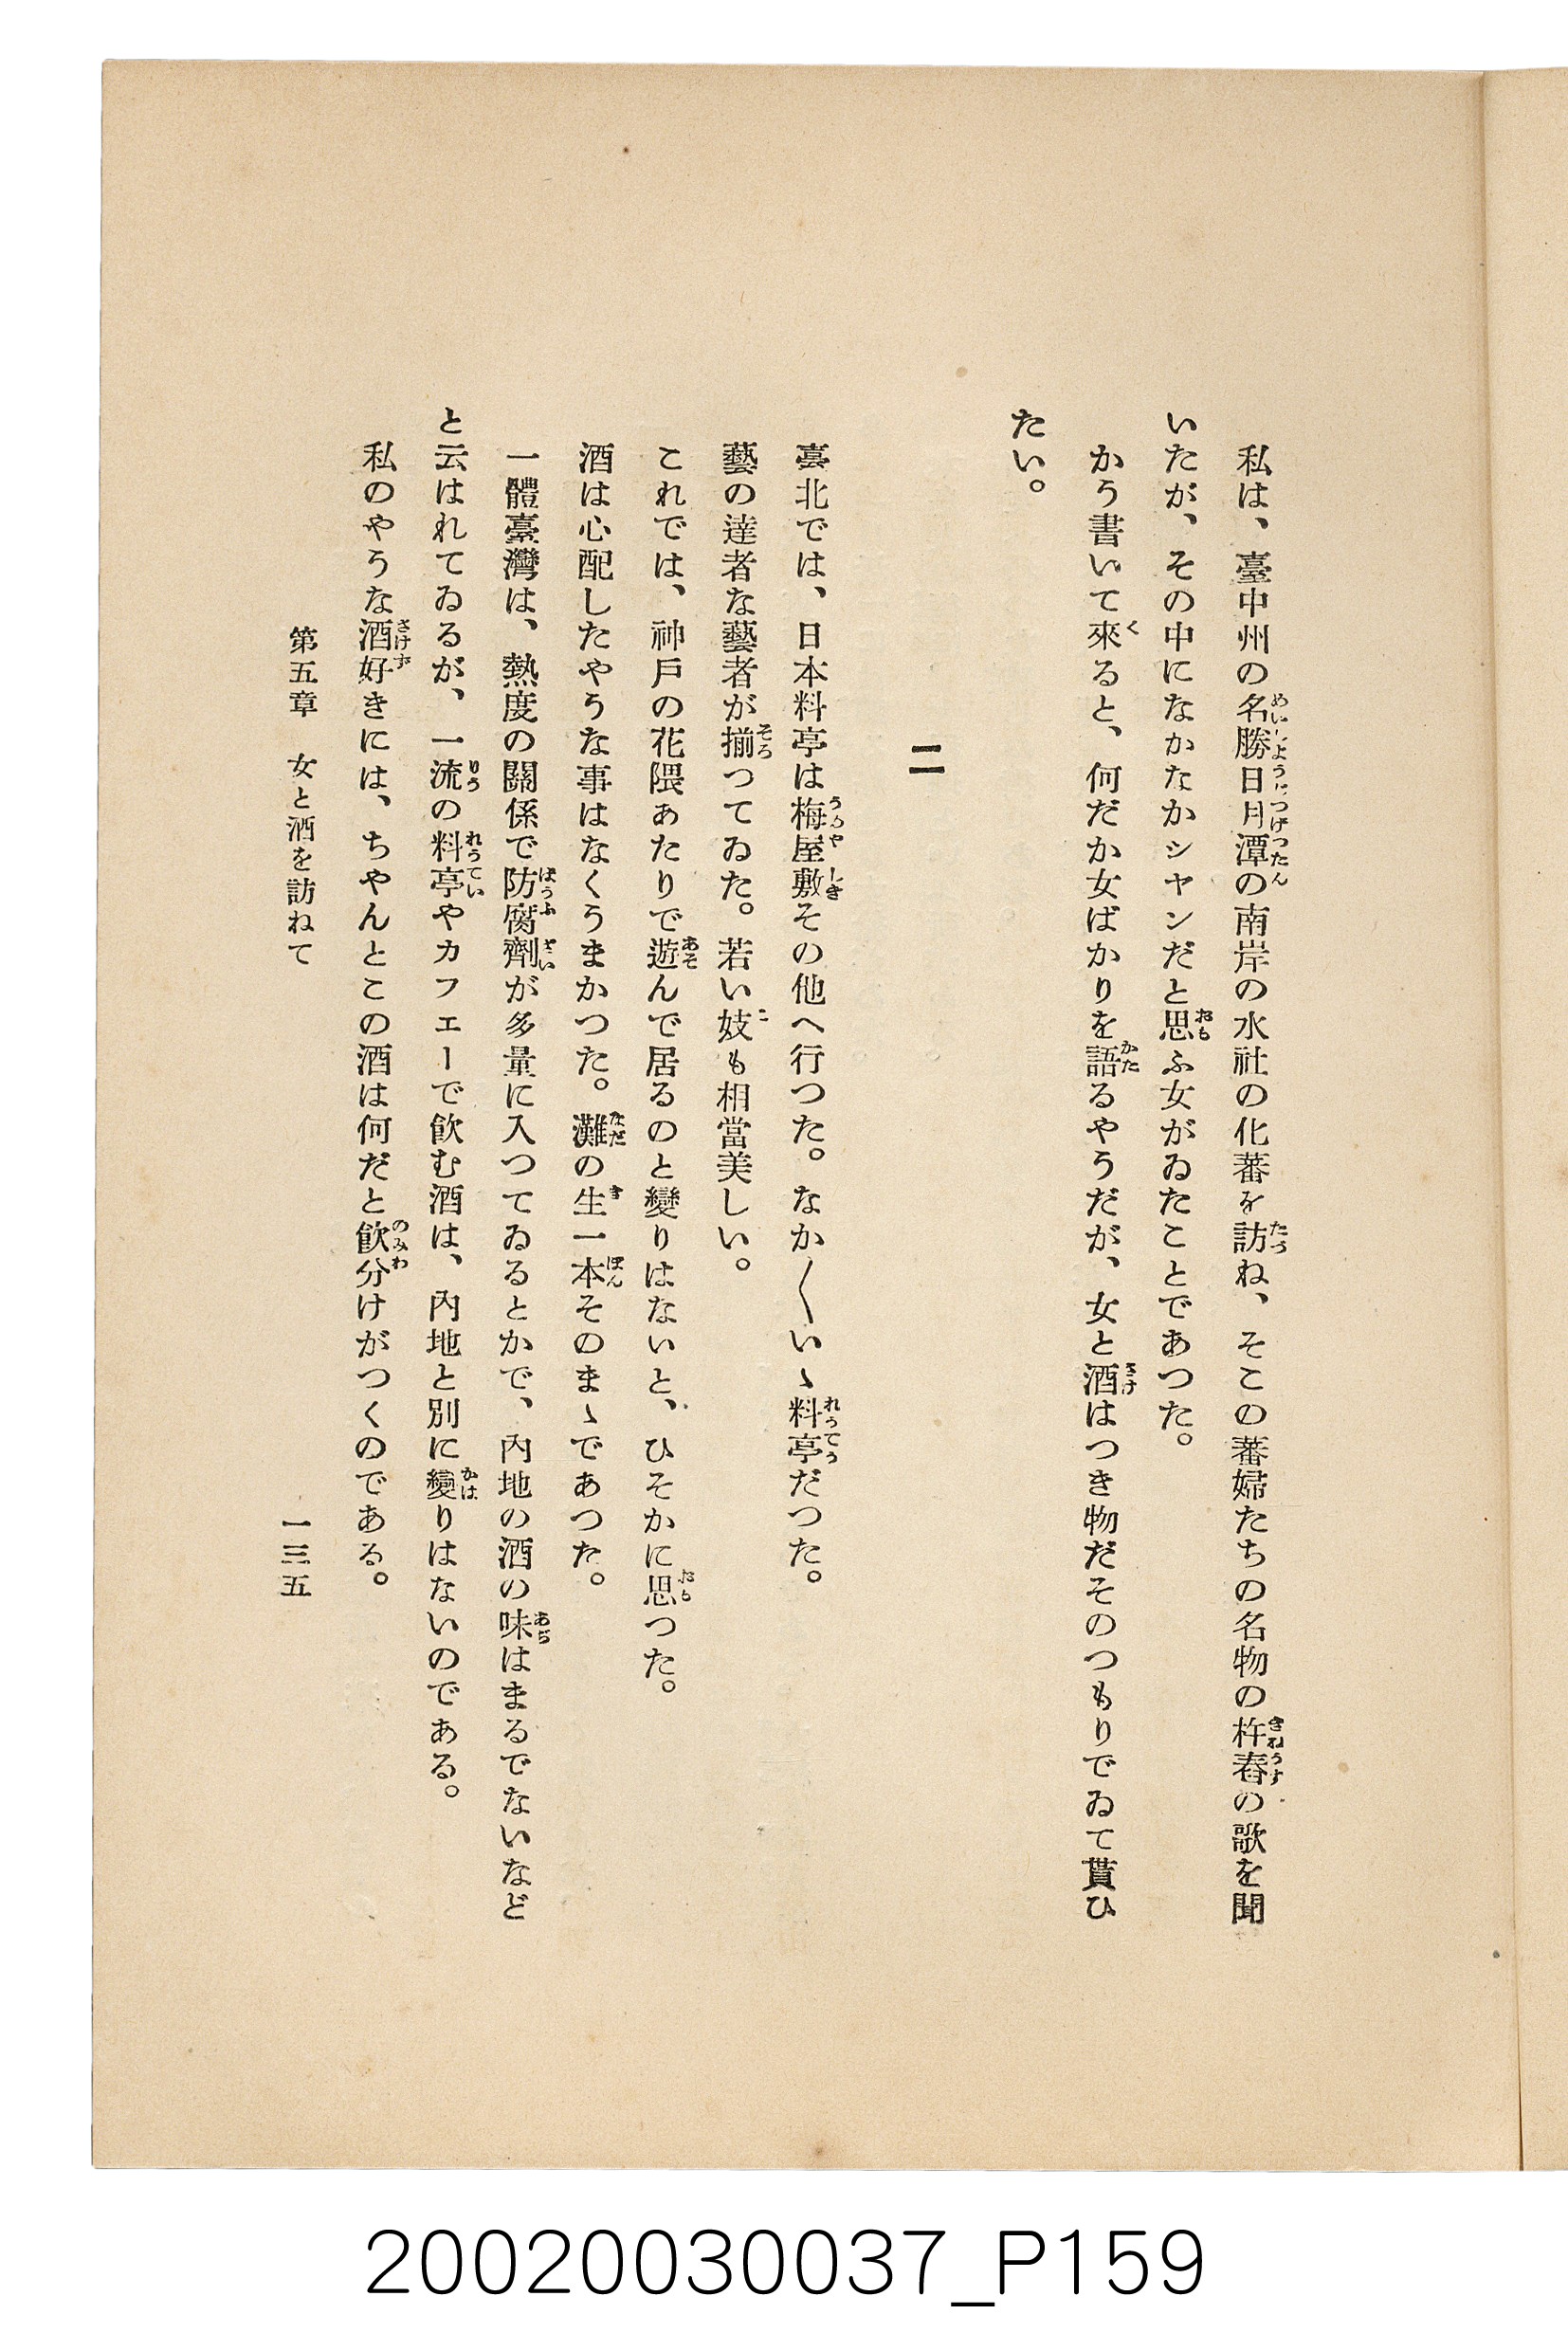 私は、臺中州の名勝日月潭の南岸の水社の化蕃を訪ね、そこの蕃婦たちの名物の杵舂の歌を聞
いたが、その中になかなかシヤンだと思ふ女がゐたことであつた。
かう書いて來ると、何だか女ばかりを語るやうだが、女と酒はつき物だそのつもりでゐて貰ひ
たい。
二
臺北では、日本料亭は梅屋敷その他へ行つた。なか〱いゝ料亭だつた。
藝の達者な藝者が揃つてゐた。若い妓も相當美しい。
これでは、神戶の花隈あたりで遊んで居るのと變りはないと、ひそかに思つた。
酒は心配したやうな事はなくうまかつた。灘の生一本そのまゝであつた。
一體臺灣は、熱度の關係で防腐劑が多量に入つてゐるとかで、內地の酒の味はまるでないなど
と云はれてゐるが、一流の料亭やカフエーで飮む酒は、內地と別に變りはないのである。
私のやうな酒好きには、ちやんとこの酒は何だと飮分けがつくのである。
第五章 女と酒を訪ねて
一三五
20020030037_P159